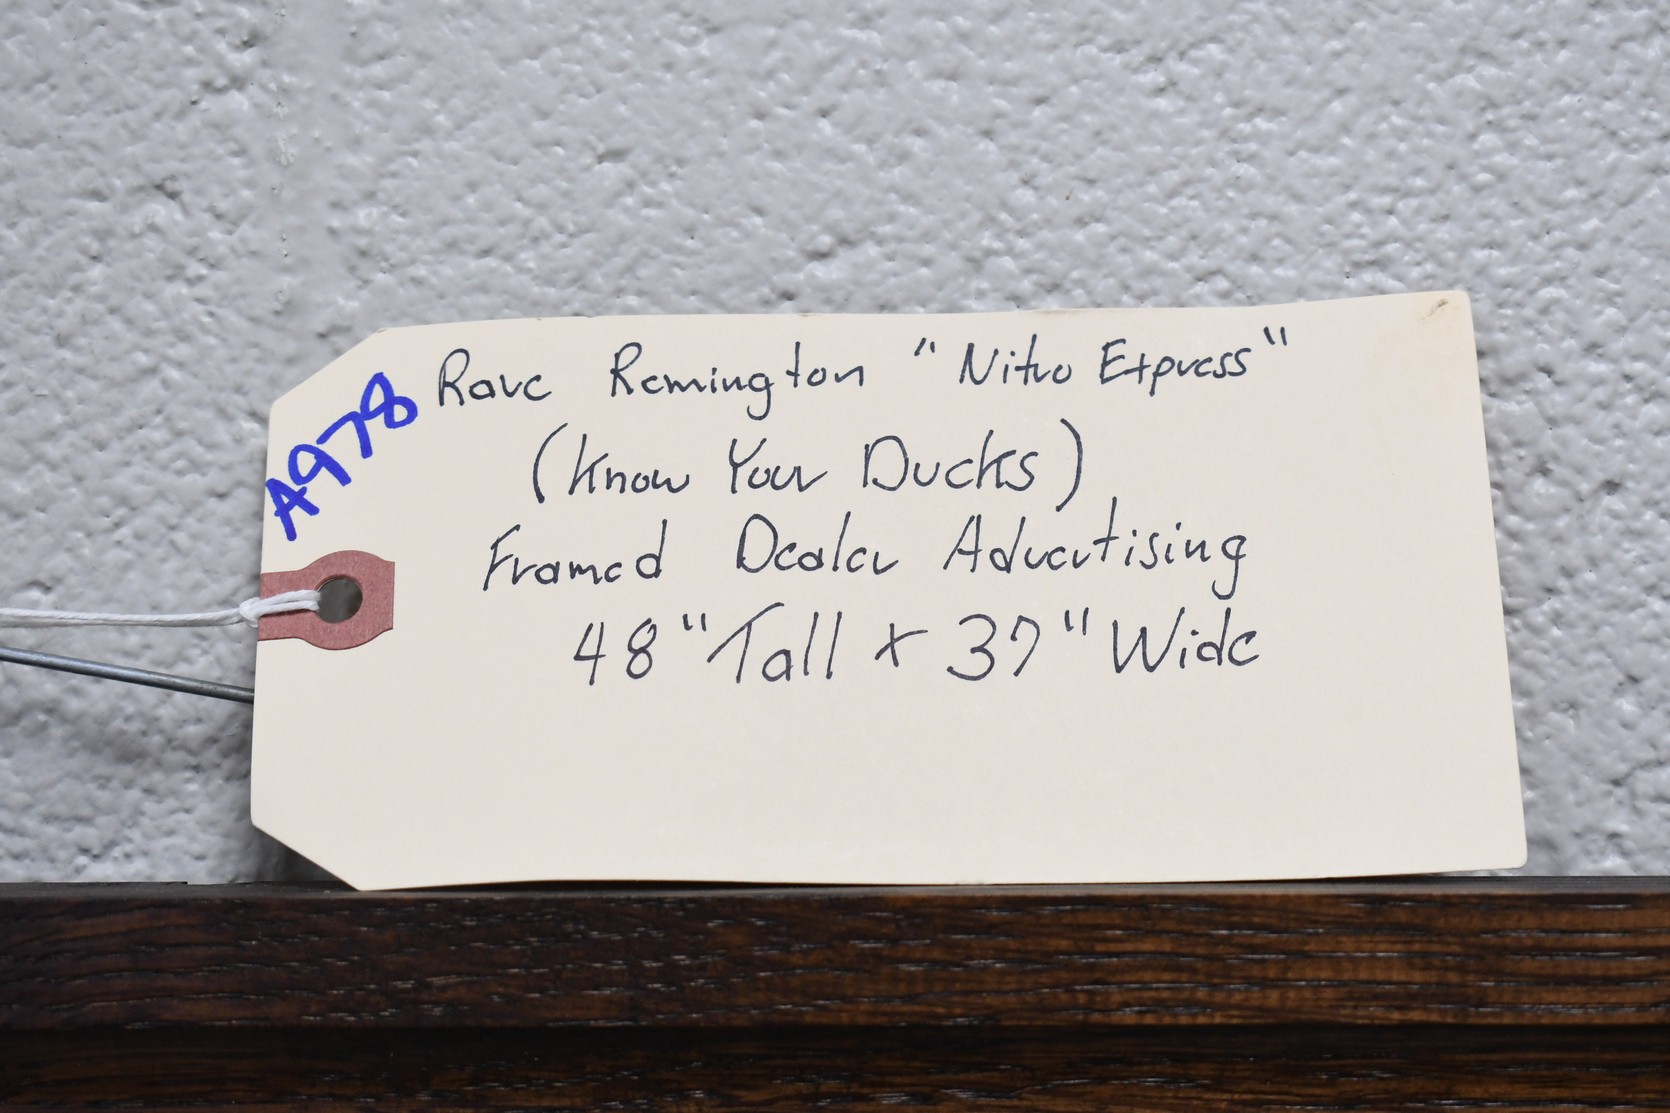 A978
Rare Remington "Nitro Express"
(Know Your Ducks)
Framed Dealer Advertising
48" Tall x 37" Wide